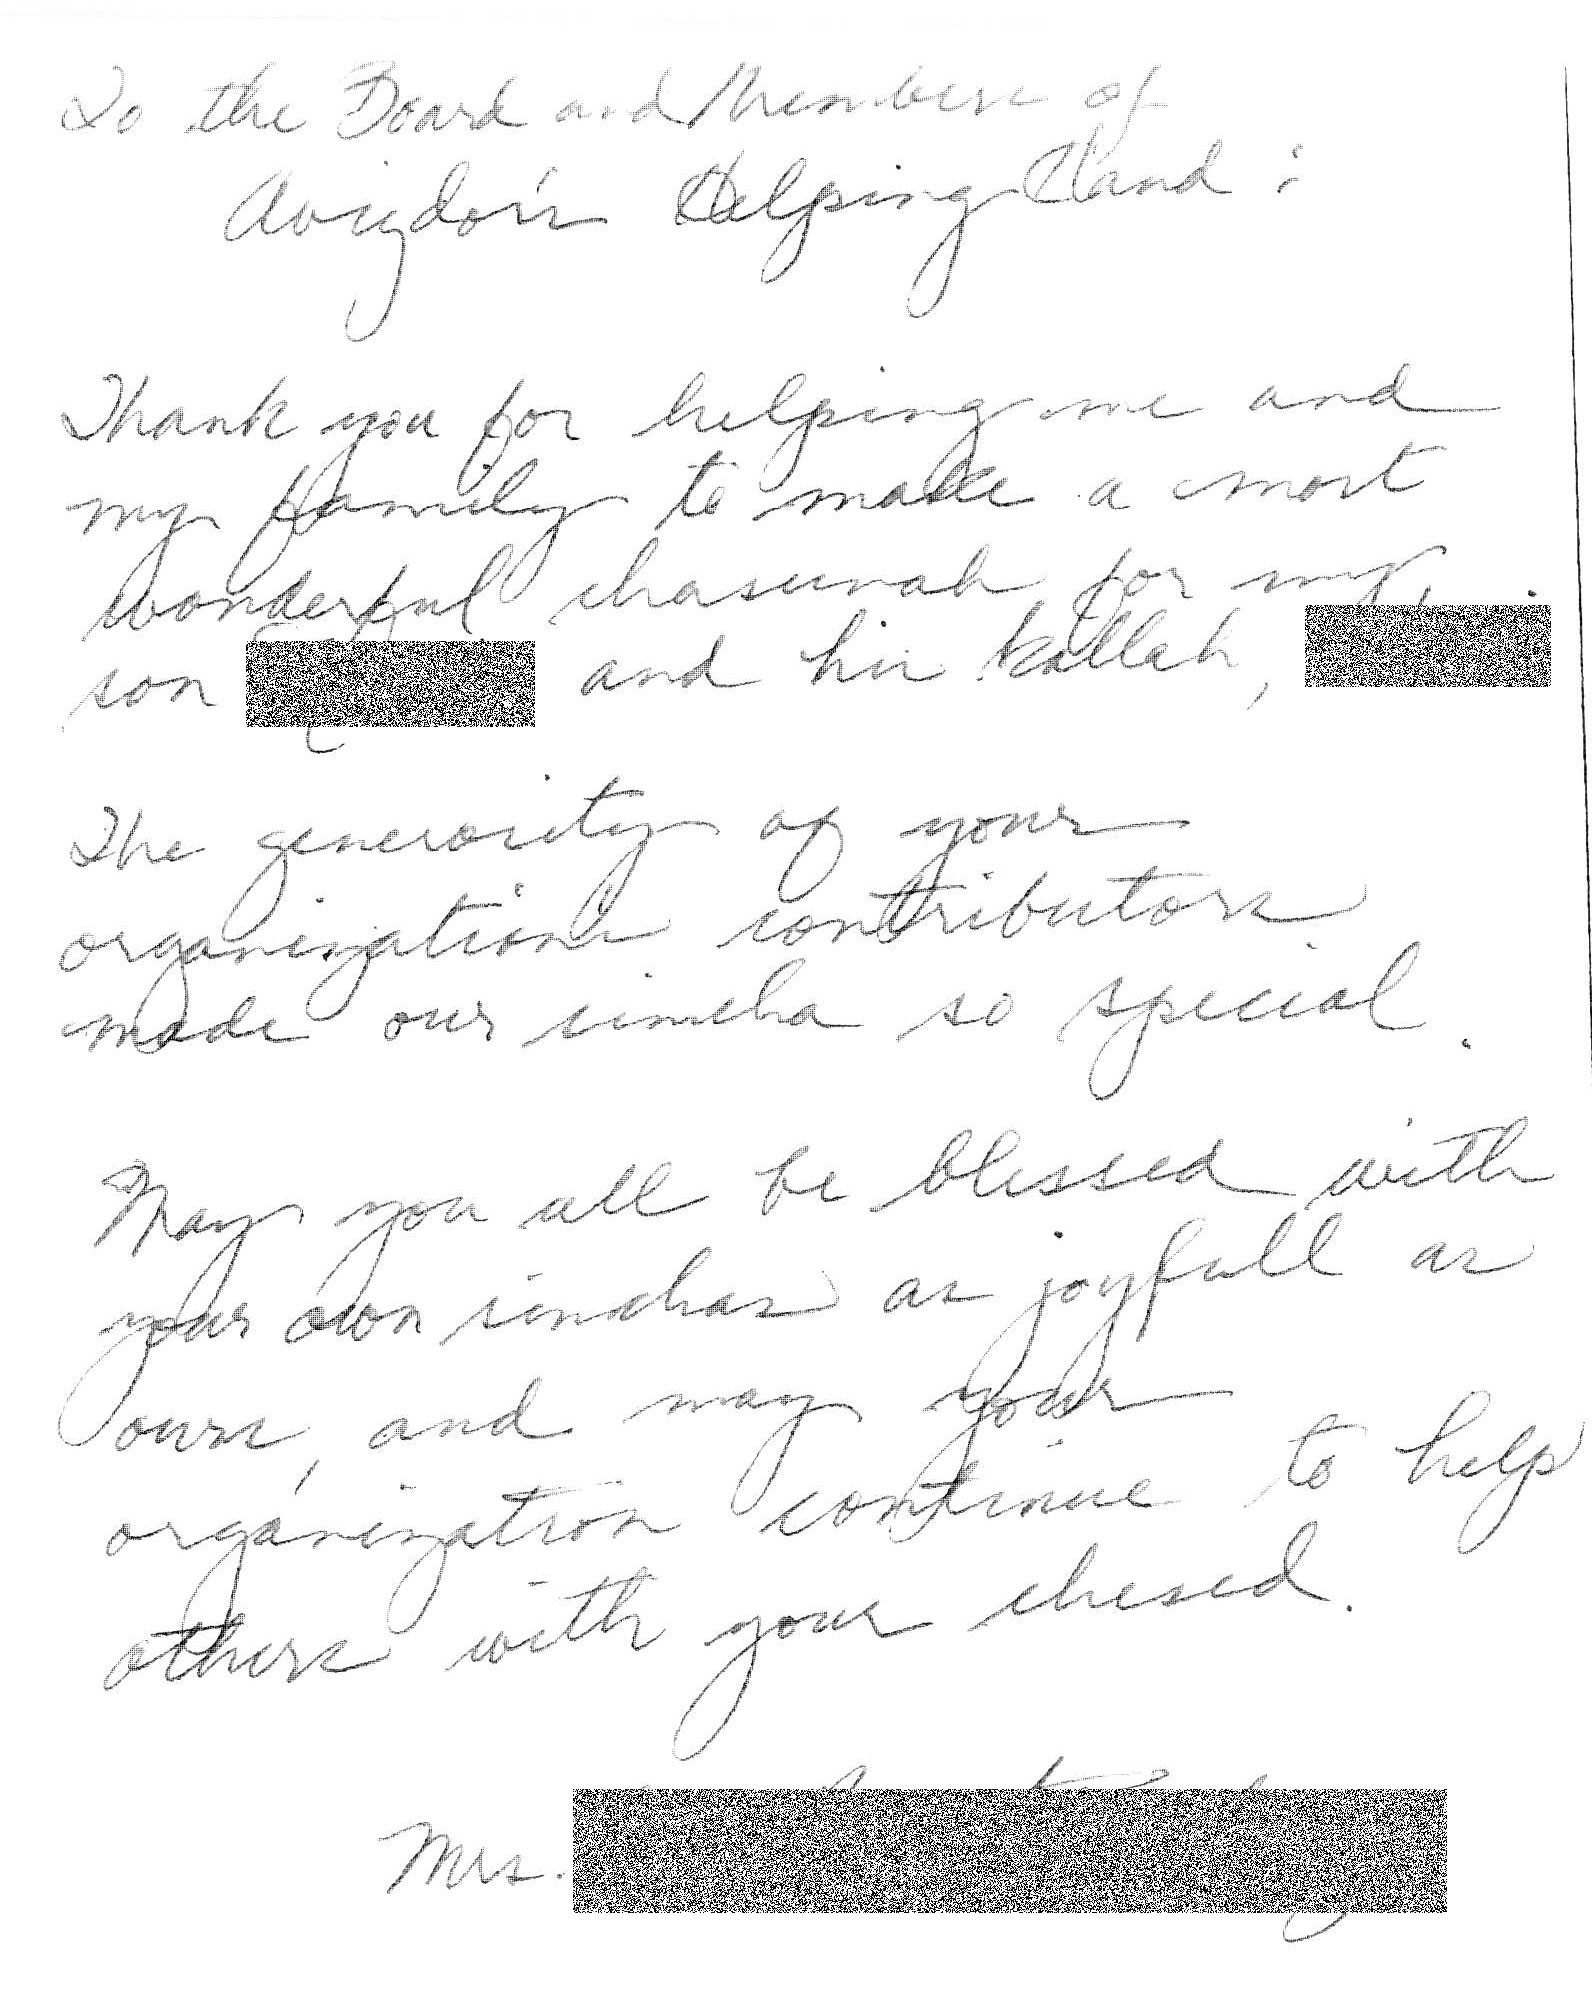 To the Board and Members of
Avigdor's Helping Hand:
Thank you for helping me and
my family to make a most
wonderful chasunah for my
son and his kallah,
The generosity of your
organization's contributors
made our simcha so special.
May you all be blessed with
your own simchas as joyfull as
ours, and may your
organization continue to help
others with your chesed.
Mrs.